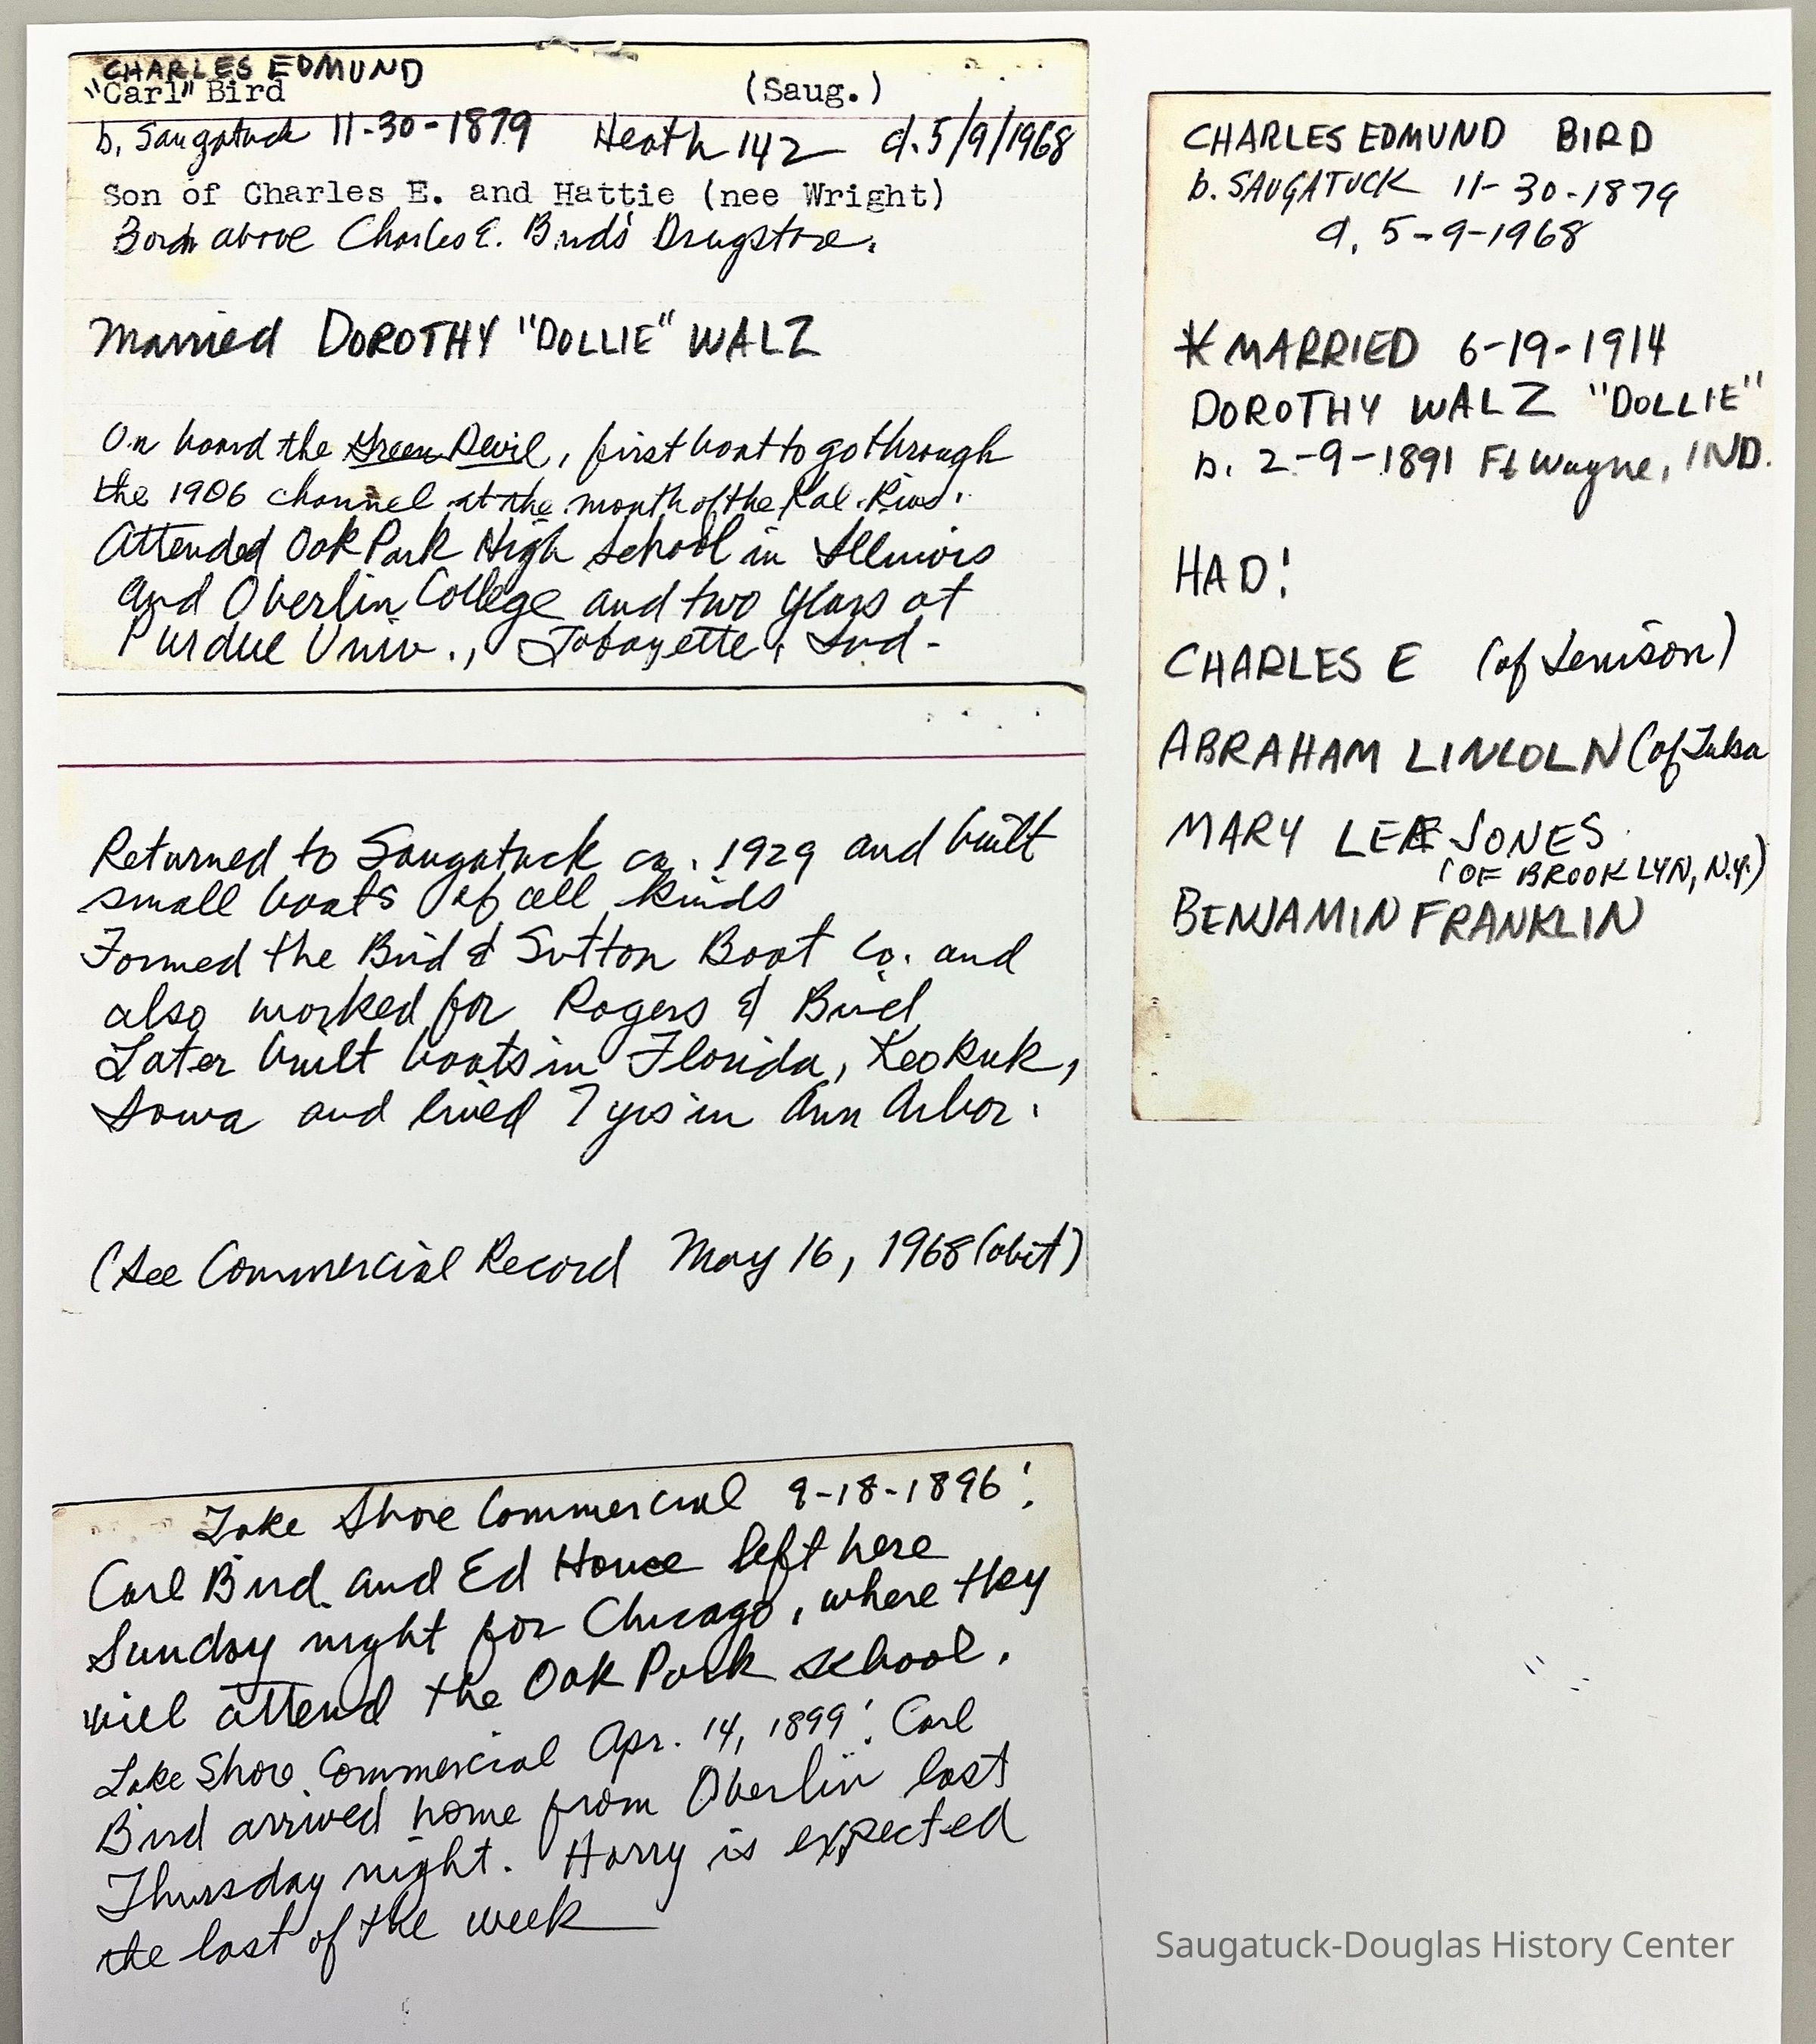 CHARLES EDMUND
"Carl" Bird (Saug.)
b. Saugatuck 11-30-1879 Heath 142 d. 5/9/1968
Son of Charles E. and Hattie (nee Wright)
Born above Charles E. Bird's Drugstore.
Married DOROTHY "DOLLIE" WALZ
On board the Green Devil, first boat to go through
the 1906 channel at the mouth of the Kal. River.
Attended Oak Park High School in Illinois
and Oberlin College and two years at
Purdue Univ., Lafayette, Ind.
Returned to Saugatuck ca. 1929 and built
small boats of all kinds
Formed the Bird & Sutton Boat Co. and
also worked for Rogers & Bird
Later built boats in Florida, Keokuk,
Iowa and lived 7 yrs in Ann Arbor.
(See Commercial Record May 16, 1968 (obit)
Lake Shore Commercial 9-18-1896:
Carl Bird and Ed House left here
Sunday night for Chicago, where they
will attend the Oak Park school.
Lake Shore Commercial Apr. 14, 1899: Carl
Bird arrived home from Oberlin last
Thursday night. Harry is expected
the last of the week
CHARLES EDMUND BIRD
b. SAUGATUCK 11-30-1879
d. 5-9-1968
*MARRIED 6-19-1914
DOROTHY WALZ "DOLLIE"
b. 2-9-1891 Ft Wayne, IND.
HAD:
CHARLES E (of Jenison)
ABRAHAM LINCOLN (of Tulsa
MARY LEE JONES
(OF BROOKLYN, N.Y.)
BENJAMIN FRANKLIN
Saugatuck-Douglas History Center